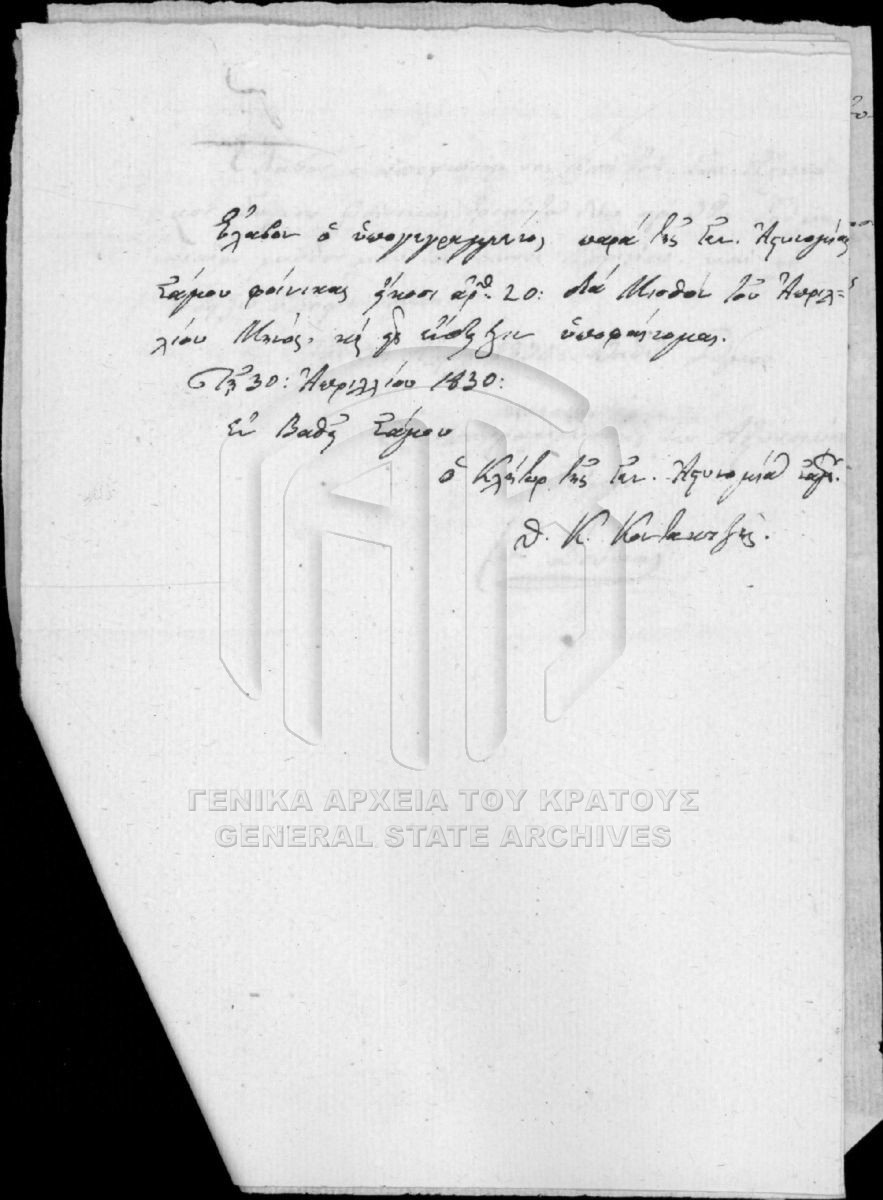 Ἔλαβον ὁ ὑπογεγραμμένος παρὰ τῆς Γεν. Ἀστυνομίας
Σάμου φοίνικας ἤκοσι ἀρθ. 20: διὰ Μισθὸν τοῦ Ἀπριλ=
λίου Μηνός, καὶ εἰς ἔνδειξιν ὑποφαίνομαι.
Τῇ 30: Ἀπριλλίου 1830:
Ἐν Βαθεῖ Σάμου
ὁ Κλήτωρ τῆς Γεν. Ἀστυνομίας
Θ. Κ.
ΓΕΝΙΚΑ ΑΡΧΕΙΑ ΤΟΥ ΚΡΑΤΟΥΣ
GENERAL STATE ARCHIVES